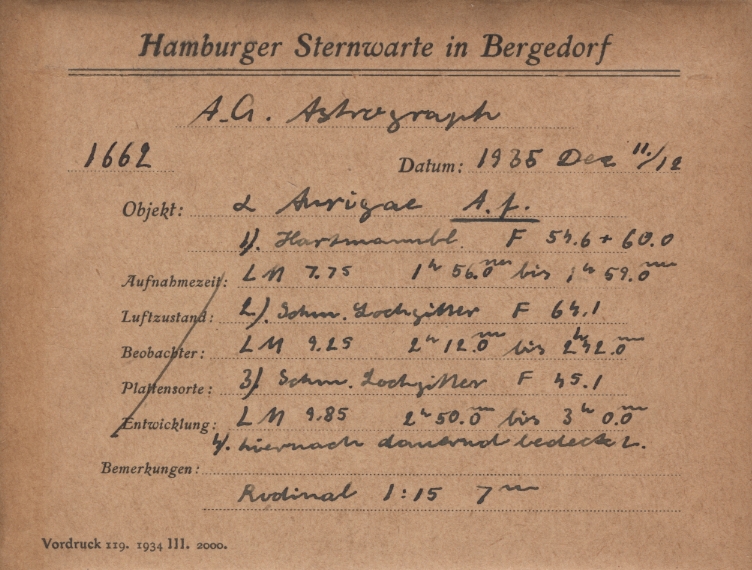 Hamburger Sternwarte in Bergedorf
A.G. Astrograph
1662 Datum: 1935 Dez 11./12
Objekt: α Aurigae A.f.
1). Hartmannbl. F 54.6 + 60.0
Aufnahmezeit: LM 7.75 1h 56.0m bis 1h 59.0m
Luftzustand: 2). Schm. Lochgitter F 64.1
Beobachter: LM 9.25 2h 12.0m bis 2h 42.0m
Plattensorte: 3). Schm. Lochgitter F 45.1
Entwicklung: LM 9.85 2h 50.0m bis 3h 0.0m
4). hiernach dauernd bedeckt.
Bemerkungen:
Rodinal 1:15 7m
Vordruck 119. 1934 III. 2000.